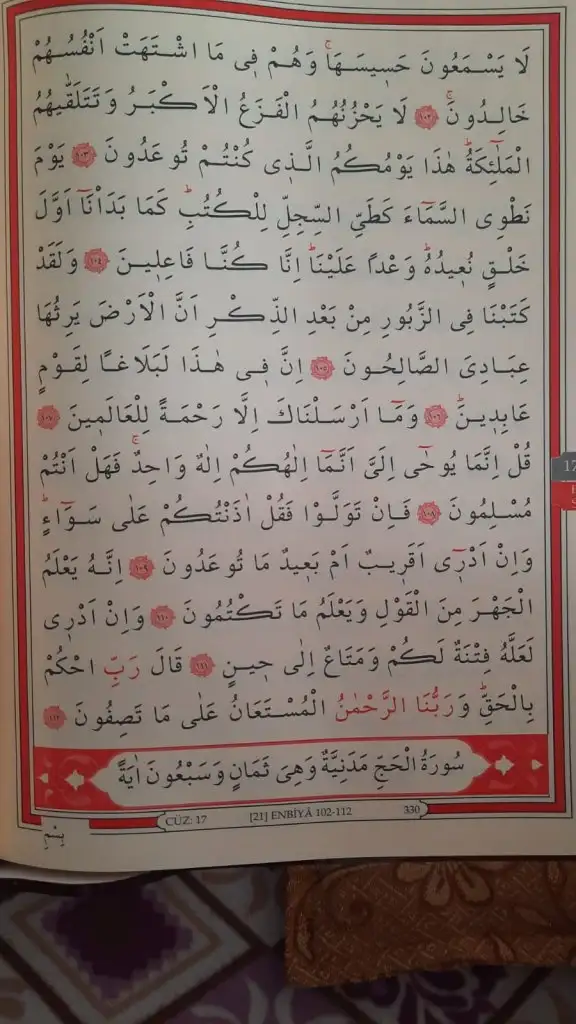 لَا يَسْمَعُونَ حَسِيسَهَاۚ وَهُمْ فٖي مَا اشْتَهَتْ اَنْفُسُهُمْ
خَالِدُونَۚ ﴿١٠٢﴾ لَا يَحْزُنُهُمُ الْفَزَعُ الْاَكْبَرُ وَتَتَلَقّٰيهُمُ
الْمَلٰٓئِكَةُؕ هٰذَا يَوْمُكُمُ الَّذٖي كُنْتُمْ تُوعَدُونَ ﴿١٠٣﴾ يَوْمَ
نَطْوِي السَّمَٓاءَ كَطَيِّ السِّجِلِّ لِلْكُتُبِؕ كَمَا بَدَأْنَٓا اَوَّلَ
خَلْقٍ نُعٖيدُهُؕ وَعْداً عَلَيْنَاؕ اِنَّا كُنَّا فَاعِلٖينَ ﴿١٠٤﴾ وَلَقَدْ
كَتَبْنَا فِي الزَّبُورِ مِنْ بَعْدِ الذِّكْرِ اَنَّ الْاَرْضَ يَرِثُهَا
عِبَادِيَ الصَّالِحُونَ ﴿١٠٥﴾ اِنَّ فٖي هٰذَا لَبَلَاغاً لِقَوْمٍ
عَابِدٖينَؕ ﴿١٠٦﴾ وَمَٓا اَرْسَلْنَاكَ اِلَّا رَحْمَةً لِلْعَالَمٖينَ ﴿١٠٧﴾
قُلْ اِنَّمَا يُوحٰٓى اِلَيَّ اَنَّمَٓا اِلٰهُكُمْ اِلٰهٌ وَاحِدٌۚ فَهَلْ اَنْتُمْ
مُسْلِمُونَ ﴿١٠٨﴾ فَاِنْ تَوَلَّوْا فَقُلْ اٰذَنْتُكُمْ عَلٰى سَوَٓاءٍؕ
وَاِنْ اَدْرٖٓي اَقَرٖيبٌ اَمْ بَعٖيدٌ مَا تُوعَدُونَ ﴿١٠٩﴾ اِنَّهُ يَعْلَمُ
الْجَهْرَ مِنَ الْقَوْلِ وَيَعْلَمُ مَا تَكْتُمُونَ ﴿١١٠﴾ وَاِنْ اَدْرٖي
لَعَلَّهُ فِتْنَةٌ لَكُمْ وَمَتَاعٌ اِلٰى حٖينٍ ﴿١١١﴾ قَالَ رَبِّ احْكُمْ
بِالْحَقِّؕ وَرَبُّنَا الرَّحْمٰنُ الْمُسْتَعَانُ عَلٰى مَا تَصِفُونَ ﴿١١٢﴾
سُورَةُ الْحَجِّ مَدَنِيَّةٌ وَهِيَ ثَمَانٍ وَسَبْعُونَ اٰيَةً
CÜZ: 17 [21] ENBİYÂ 102-112 330
بِسْمِ
17